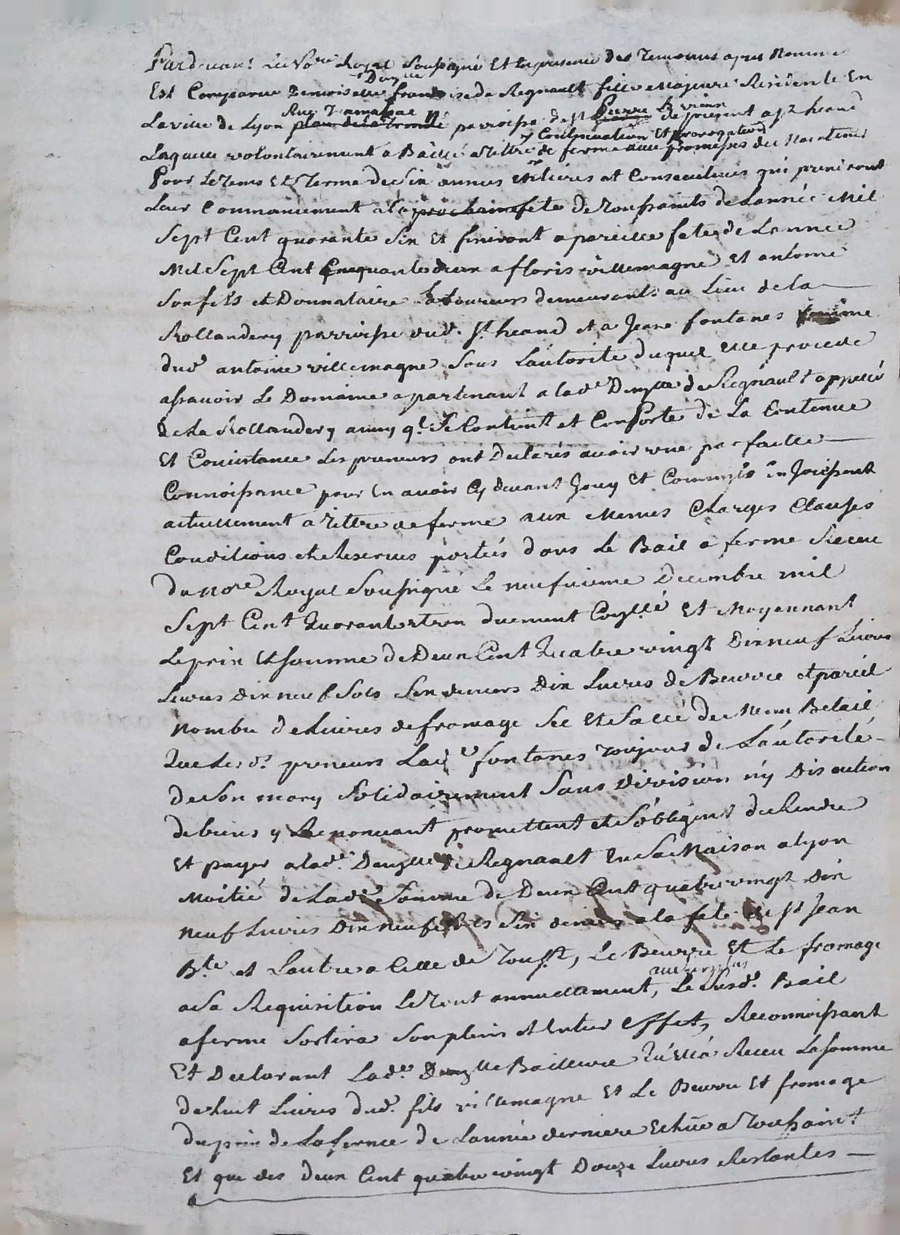 Pardevant Le No.re Royal Soussigné Et En presence des Temoins apres Nommé
Est Comparue Demoiselle francoise de Regnault fille Majeure Residente En
Rue
La ville de Lyon paroisse de St Pierre de present a St heand
Continuation Et prorogation
Laquelle volontairement a Baillé a Tittre de ferme avec promesses de Maintenir
Pour Le Tems Et Terme de Six années Entieres et Consecutives qui prendront
Leur Commancement a la prochaine fete de Toussaints de L'année Mil
Sept Cent quarante Six Et finiront a pareille fete de L'année
Mil Sept Cent Cinquante deux a floris villemagne Et antoine
Son fils et Donnataire Laboureurs demeurants au Lieu de la
Rollandery parroisse dud. St heand et a Jeane fontanes femme
dud. antoine villemagne Sous L'autorité duquel Elle procede
assavoir Le Domaine apartenant a lad.e Dem.lle de Regnault appellé
de La Rollandery ainsy q. Se Contient et Comporte de La Contenue
Et Consistance Les preneurs ont Declarés avoir une parfaitte
Connoissance pour En avoir Cy devant Jouy Et Comm'ils En Joüissent
actuellement a Tittre de ferme aux Memes Charges Clauses
Conditions et Reserves portées dans Le Bail a ferme Receu
du No.re Royal Soussigné Le neufvieme Decembre mil
Sept Cent Quarante trois duement Et Moyennant
Le prix Et Somme de Deux Cent Quatre vingt Dix neuf Livres
Livres Dix neuf Sols Six deniers Dix Livres de Beurre et pareil
nombre de Livres de fromage Sec Et Sallé de
Que Les d. preneurs Lad.e fontanes Toujours de L'autorité
de Son mary Solidairement Sans Division n'y Discution
de biens y Renoncant promettent et S'obligent de Rendre
Et payer a lad.e Dem.lle de Regnault En Sa Maison a Lyon
Moitié de Lad.e Somme de Deux Cent quatre vingt Dix
neuf Livres Dix neuf Sols Six deniers a la fete de St Jean
B.te et L'autre a Celle de Touss.ts, Le Beurre Et Le fromage
a Sa Requisition Le Tout annuellement, Le Susd. Bail
a ferme Sortira Son plein Et Entier Effet, Reconnoissant
Et Declarant Lad.e Dem.lle Bailleure Qu'Ell'a Receu La Somme
de huit Livres dud. fils villemagne Et Le Beurre Et fromage
du prix de La ferme de L'année derniere Echüe a Toussaint
Et que des deux Cent quatre vingt Douze Livres Restantes